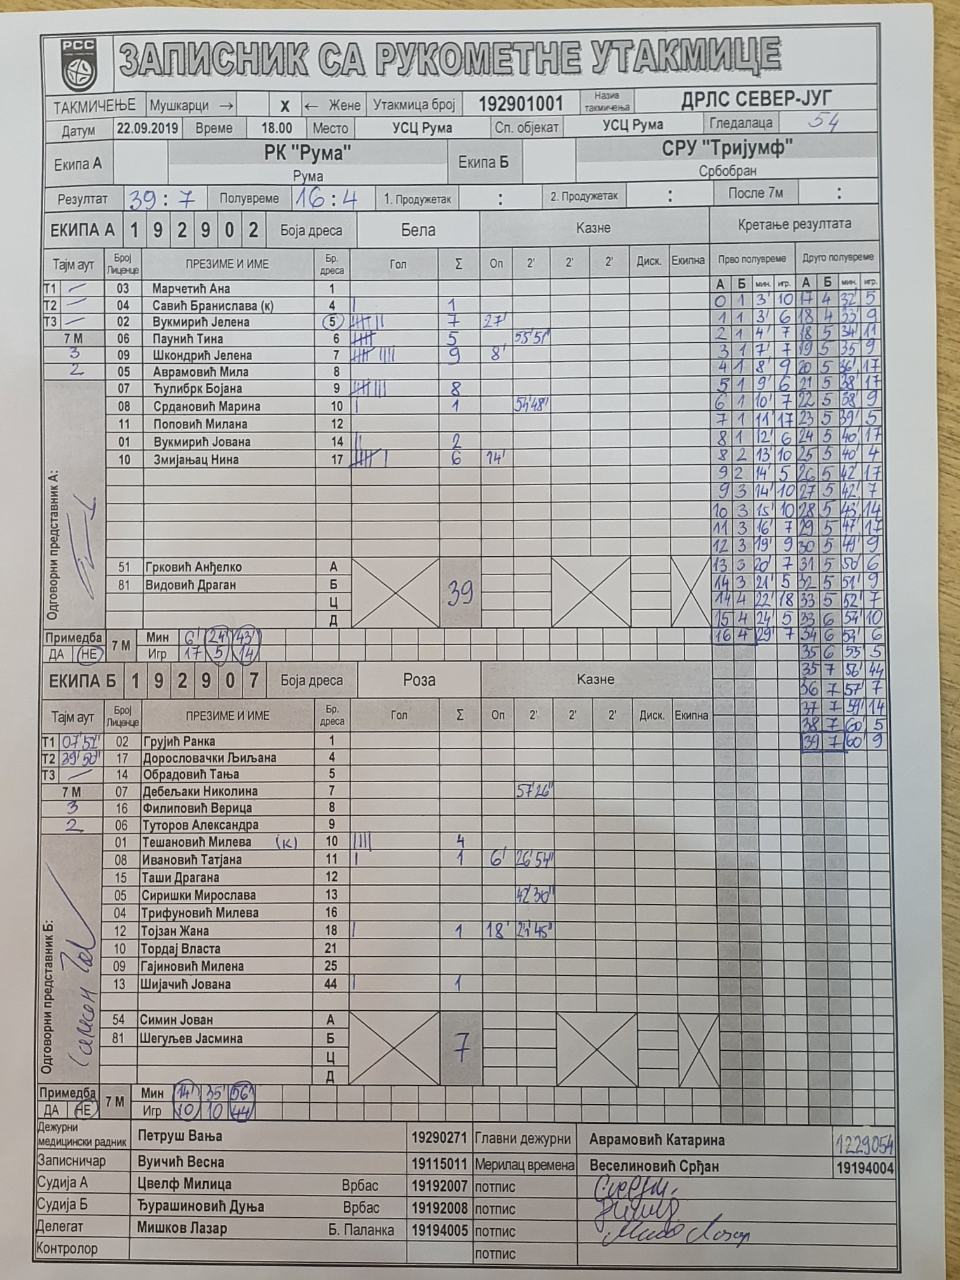 РСС
ЗАПИСНИК СА РУКОМЕТНЕ УТАКМИЦЕ
ТАКМИЧЕЊЕ Мушкарци → X ← Жене Утакмица број 192901001 Назив такмичења ДРЛС СЕВЕР-ЈУГ
Датум 22.09.2019 Време 18.00 Место УСЦ Рума Сп. објекат УСЦ Рума Гледалаца 54
Екипа А РК "Рума" Рума Екипа Б СРУ "Тријумф" Србобран
Резултат 39 : 7 Полувреме 16 : 4 1. Продужетак : 2. Продужетак : После 7м :
ЕКИПА А 1 9 2 9 0 2 Боја дреса Бела Казне Кретање резултата
Тајм аут Број Лиценце ПРЕЗИМЕ И ИМЕ Бр. дреса Гол Σ Оп 2' 2' 2' Диск. Екипна Прво полувреме Друго полувреме
А Б мин. игр. А Б мин. игр.
Т1 – 03 Марчетић Ана 1
Т2 – 04 Савић Бранислава (к) 4 1
Т3 – 02 Вукмирић Јелена 5 7 27'
7 М 06 Паунић Тина 6 5 55'51"
3 09 Шкондрић Јелена 7 9 8'
2 05 Аврамовић Мила 8
07 Ћулибрк Бојана 9 8
08 Срдановић Марина 10 1 54'48"
11 Поповић Милана 12
01 Вукмирић Јована 14 2
10 Змијањац Нина 17 6 14'
51 Грковић Анђелко А
81 Видовић Драган Б
Ц
Д
39
Одговорни представник А:
0 1 3' 10 17 4 32' 5
1 1 3' 6 18 4 33' 9
2 1 4' 7 18 5 34' 11
3 1 7' 7 19 5 35' 9
4 1 8' 9 20 5 36' 17
5 1 9' 6 21 5 38' 17
6 1 10' 7 22 5 38' 9
7 1 11' 17 23 5 39' 5
8 1 12' 6 24 5 40' 17
8 2 13' 10 25 5 40' 4
9 2 14' 5 26 5 42' 17
9 3 14' 10 27 5 42' 7
10 3 15' 10 28 5 43' 14
11 3 16' 7 29 5 47' 17
12 3 19' 9 30 5 49' 9
13 3 20' 7 31 5 50' 6
14 3 21' 5 32 5 51' 9
14 4 22' 18 33 5 52' 7
15 4 24' 5 33 6 54' 10
16 4 29' 7 34 6 54' 6
35 6 55' 5
35 7 56' 44
36 7 57' 7
37 7 59' 14
38 7 60' 5
39 7 60' 9
Примедба ДА НЕ 7 М Мин 6' 24' 43'
Игр 17 5 14
ЕКИПА Б 1 9 2 9 0 7 Боја дреса Роза Казне
Тајм аут Број Лиценце ПРЕЗИМЕ И ИМЕ Бр. дреса Гол Σ Оп 2' 2' 2' Диск. Екипна
Т1 07'51" 02 Грујић Ранка 1
Т2 39'50" 17 Дорословачки Љиљана 4
Т3 – 14 Обрадовић Тања 5
7 М 07 Дебељаки Николина 7 57'26"
3 16 Филиповић Верица 8
2 06 Туторов Александра 9
01 Тешановић Милева (к) 10 4
08 Ивановић Татјана 11 1 6' 26'54"
15 Таши Драгана 12
05 Сиришки Мирослава 13 42'30"
04 Трифуновић Милева 16
12 Тојзан Жана 18 1 18' 21'45"
10 Тордај Власта 21
09 Гајиновић Милена 25
13 Шијачић Јована 44 1
54 Симин Јован А
81 Шегуљев Јасмина Б
Ц
Д
7
Одговорни представник Б:
Примедба ДА НЕ 7 М Мин 14' 35' 56'
Игр 10 10 44
Дежурни медицински радник Петруш Вања 19290271 Главни дежурни Аврамовић Катарина 1229054
Записничар Вуичић Весна 19115011 Мерилац времена Веселиновић Срђан 19194004
Судија А Цвелф Милица Врбас 19192007 потпис
Судија Б Ђурашиновић Дуња Врбас 19192008 потпис
Делегат Мишков Лазар Б. Паланка 19194005 потпис
Контролор потпис